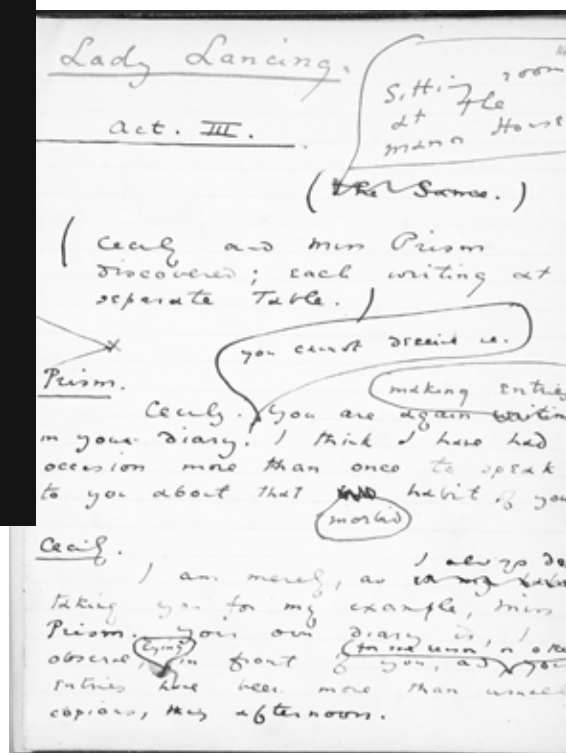 Lady Lancing.
Act. III.
Sitting room
at the
Manor House
(the Same.)
(Cecily and Miss Prism
discovered; each writing at
separate Table.)
you cannot deceive me.
Prism.
making entries
Cecily. You are again writing
in your diary. I think I have had
occasion more than once to speak
to you about that habit of you
morbid
Cecily.
I always do
I am merely, as
taking you for my example, Miss
Prism. Your own diary is, I
lying
for some reason or other
observe, in front of you, and your
entries have been more than usually
copious, this afternoon.